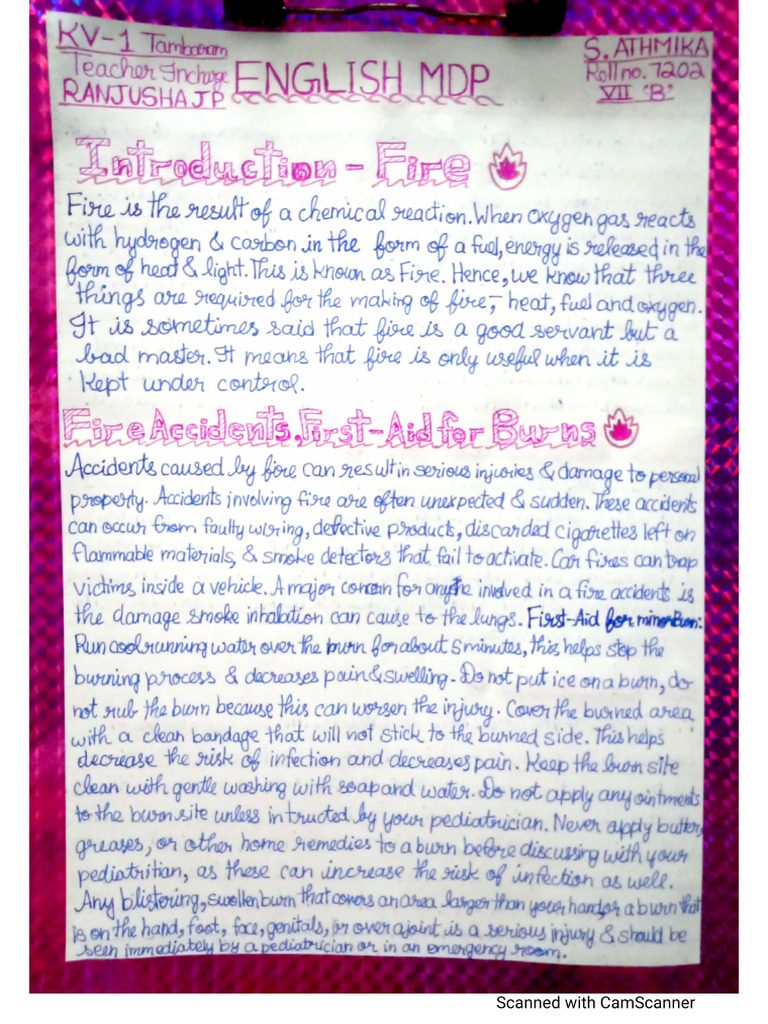 KV-1 Tambaram
Teacher Incharge
RANJUSHA J P
ENGLISH MDP
S. ATHMIKA
Roll no. 7202
VII 'B'
Introduction - Fire
Fire is the result of a chemical reaction. When oxygen gas reacts
with hydrogen & carbon in the form of a fuel, energy is released in the
form of heat & light. This is known as Fire. Hence, we know that three
things are required for the making of fire;- heat, fuel and oxygen.
It is sometimes said that fire is a good servant but a
bad master. It means that fire is only useful when it is
kept under control.
Fire Accidents, First-Aid for Burns
Accidents caused by fire can result in serious injuries & damage to personal
property. Accidents involving fire are often unexpected & sudden. These accidents
can occur from faulty wiring, defective products, discarded cigarettes left on
flammable materials, & smoke detectors that fail to activate. Car fires can trap
victims inside a vehicle. A major concern for anyone involved in a fire accidents is
the damage smoke inhalation can cause to the lungs. First-Aid for minor Burn:
Run cool running water over the burn for about 5 minutes, this helps stop the
burning process & decreases pain & swelling. Do not put ice on a burn, do
not rub the burn because this can worsen the injury. Cover the burned area
with a clean bandage that will not stick to the burned side. This helps
decrease the risk of infection and decreases pain. Keep the burn site
clean with gentle washing with soap and water. Do not apply any ointments
to the burn site unless intructed by your pediatrician. Never apply butter,
greases, or other home remedies to a burn before discussing with your
pediatritian, as these can increase the risk of infection as well.
Any blistering, swollen burn that covers an area larger than your hand, or a burn that
is on the hand, foot, face, genitals, or over a joint is a serious injury & should be
seen immediately by a pediatrician or in an emergency room.
Scanned with CamScanner